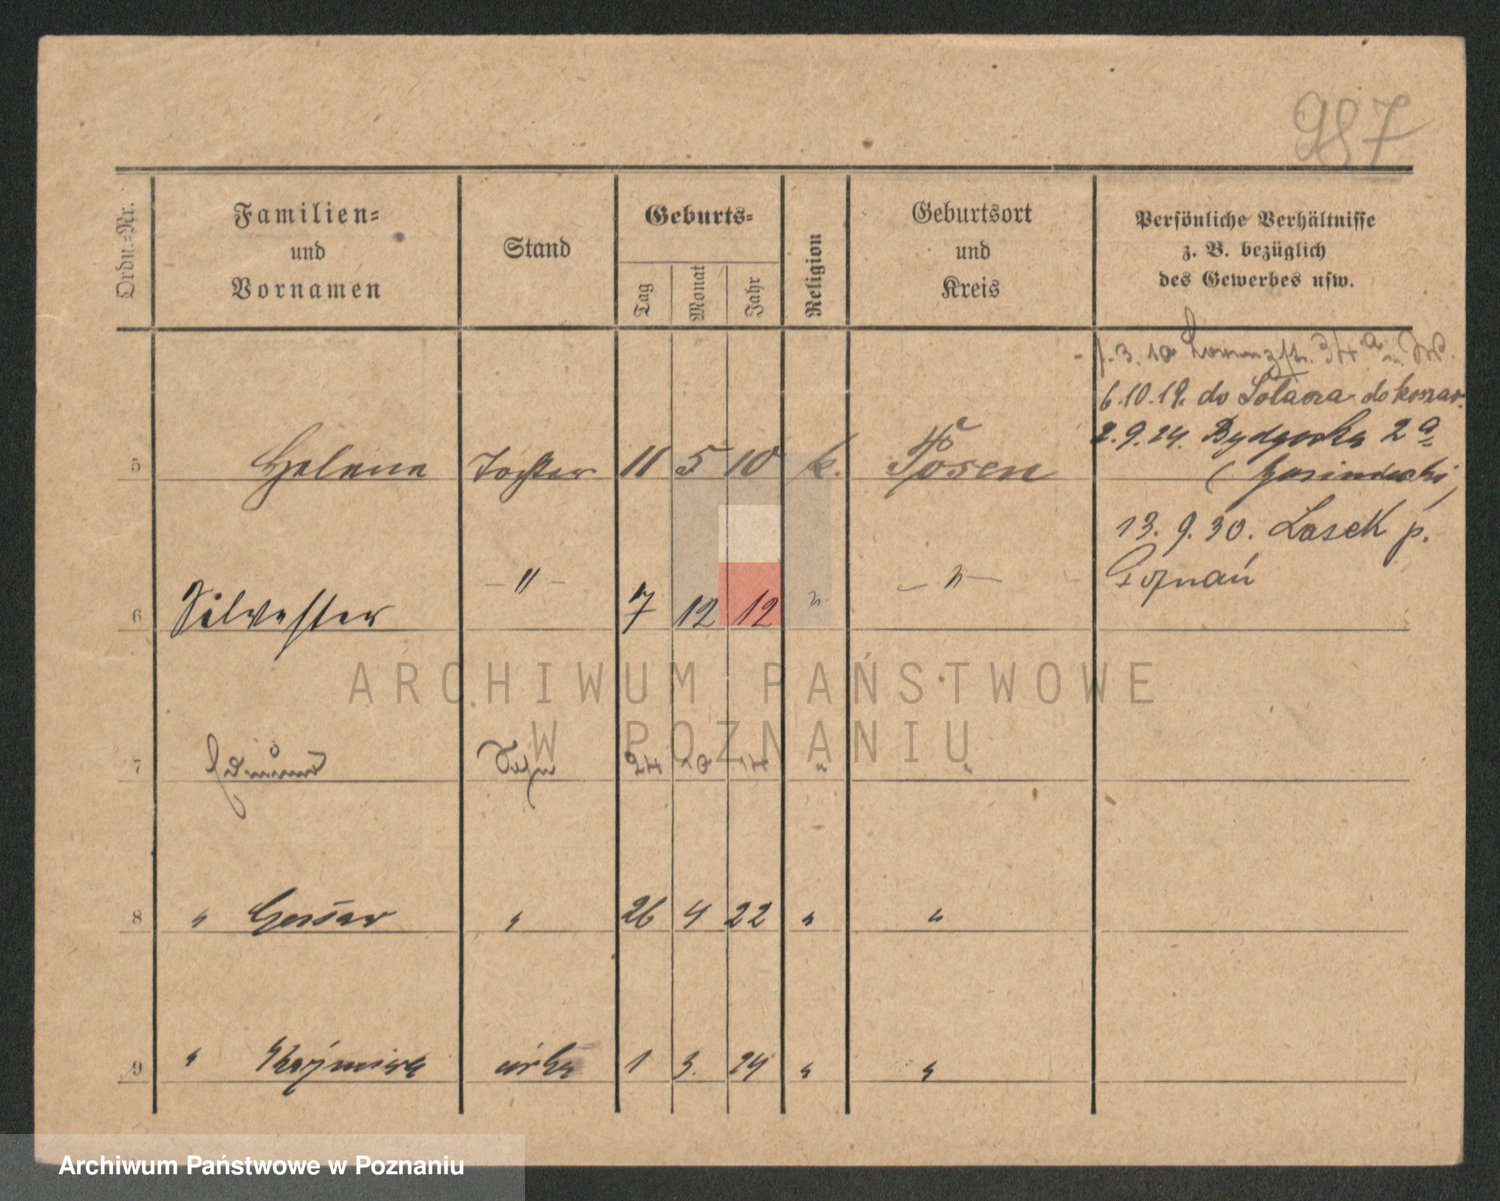 987
Ordn.-Nr.
Familien-
und
Vornamen
Stand
Geburts-
Tag
Monat
Jahr
Religion
Geburtsort
und
Kreis
Persönliche Verhältnisse
z. B. bezüglich
des Gewerbes usw.
3. 10 34a
6.10.19. do Sołacza do koszar
2.9.24. Bydgoska 2a
5 Helene Tochter 11 5 10 k. Posen
13. 9. 30. Lasek p.
Poznań
6 Silvester – " – 7 12 12 " – " –
7 Edmund Sohn 24 10 14 " "
8 " Cesar " 26 4 22 " "
9 " Kazimira córka 1 3. 24 " "
ARCHIWUM PAŃSTWOWE
W POZNANIU
Archiwum Państwowe w Poznaniu